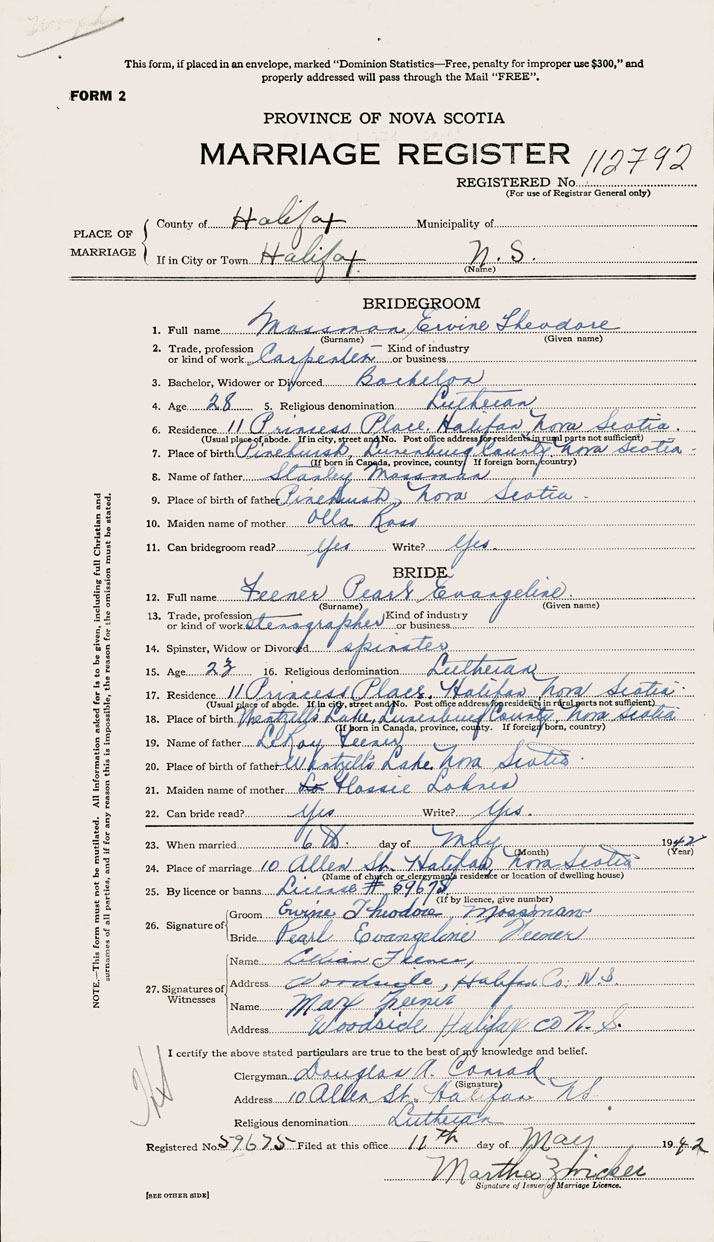 This form, if placed in an envelope, marked "Dominion Statistics—Free, penalty for improper use $300," and
properly addressed will pass through the Mail "FREE".
FORM 2
PROVINCE OF NOVA SCOTIA
MARRIAGE REGISTER
112792
REGISTERED No.
(For use of Registrar General only)
PLACE OF MARRIAGE
County of Halifax Municipality of
If in City or Town Halifax N.S.
(Name)
BRIDEGROOM
1. Full name Mossman, Ervine Theodore
(Surname) (Given name)
2. Trade, profession or kind of work Carpenter — Kind of industry or business
3. Bachelor, Widower or Divorced Bachelor
4. Age 28 5. Religious denomination Lutheran
6. Residence 11 Princess Place, Halifax Nova Scotia.
(Usual place of abode. If in city, street and No. Post office address for residents in rural parts not sufficient)
7. Place of birth Pinehurst, Lunenburg County Nova Scotia.
(If born in Canada, province, county. If foreign born, country)
8. Name of father Stanley Mossman
9. Place of birth of father Pinehurst, Nova Scotia.
10. Maiden name of mother Olla Ross
11. Can bridegroom read? Yes Write? Yes.
BRIDE
12. Full name Feener Pearl Evangeline.
(Surname) (Given name)
13. Trade, profession or kind of work stenographer Kind of industry or business
14. Spinster, Widow or Divorced spinster
15. Age 23 16. Religious denomination Lutheran
17. Residence 11 Princess Place, Halifax Nova Scotia.
(Usual place of abode. If in city, street and No. Post office address for residents in rural parts not sufficient)
18. Place of birth Lake, Lunenburg County, Nova Scotia
(If born in Canada, province, county. If foreign born, country)
19. Name of father LeRoy Feener
20. Place of birth of father Lake Nova Scotia.
21. Maiden name of mother Flossie Lohnes
22. Can bride read? Yes Write? Yes.
23. When married 6th. day of May 1942
(Month) (Year)
24. Place of marriage 10 Allen St. Halifax, Nova Scotia
(Name of church or clergyman's residence or location of dwelling house)
25. By licence or banns License # 59675
(If by licence, give number)
26. Signature of
Groom Ervine Theodore Mossman
Bride Pearl Evangeline Feener
27. Signatures of Witnesses
Name Lillian Feener,
Address Woodside, Halifax Co. N.S.
Name Max Feener
Address Woodside Halifax co N.S.
I certify the above stated particulars are true to the best of my knowledge and belief.
Clergyman Douglas A. Conrad
(Signature)
Address 10 Allen St. Halifax NS
Religious denomination Lutheran
Registered No. 59675 Filed at this office 11th day of May 1942
Martha Zwicker
Signature of Issuer of Marriage Licence.
[SEE OTHER SIDE]
NOTE.—This form must not be mutilated. All information asked for is to be given, including full Christian and
surnames of all parties, and if for any reason this is impossible, the reason for the omission must be stated.